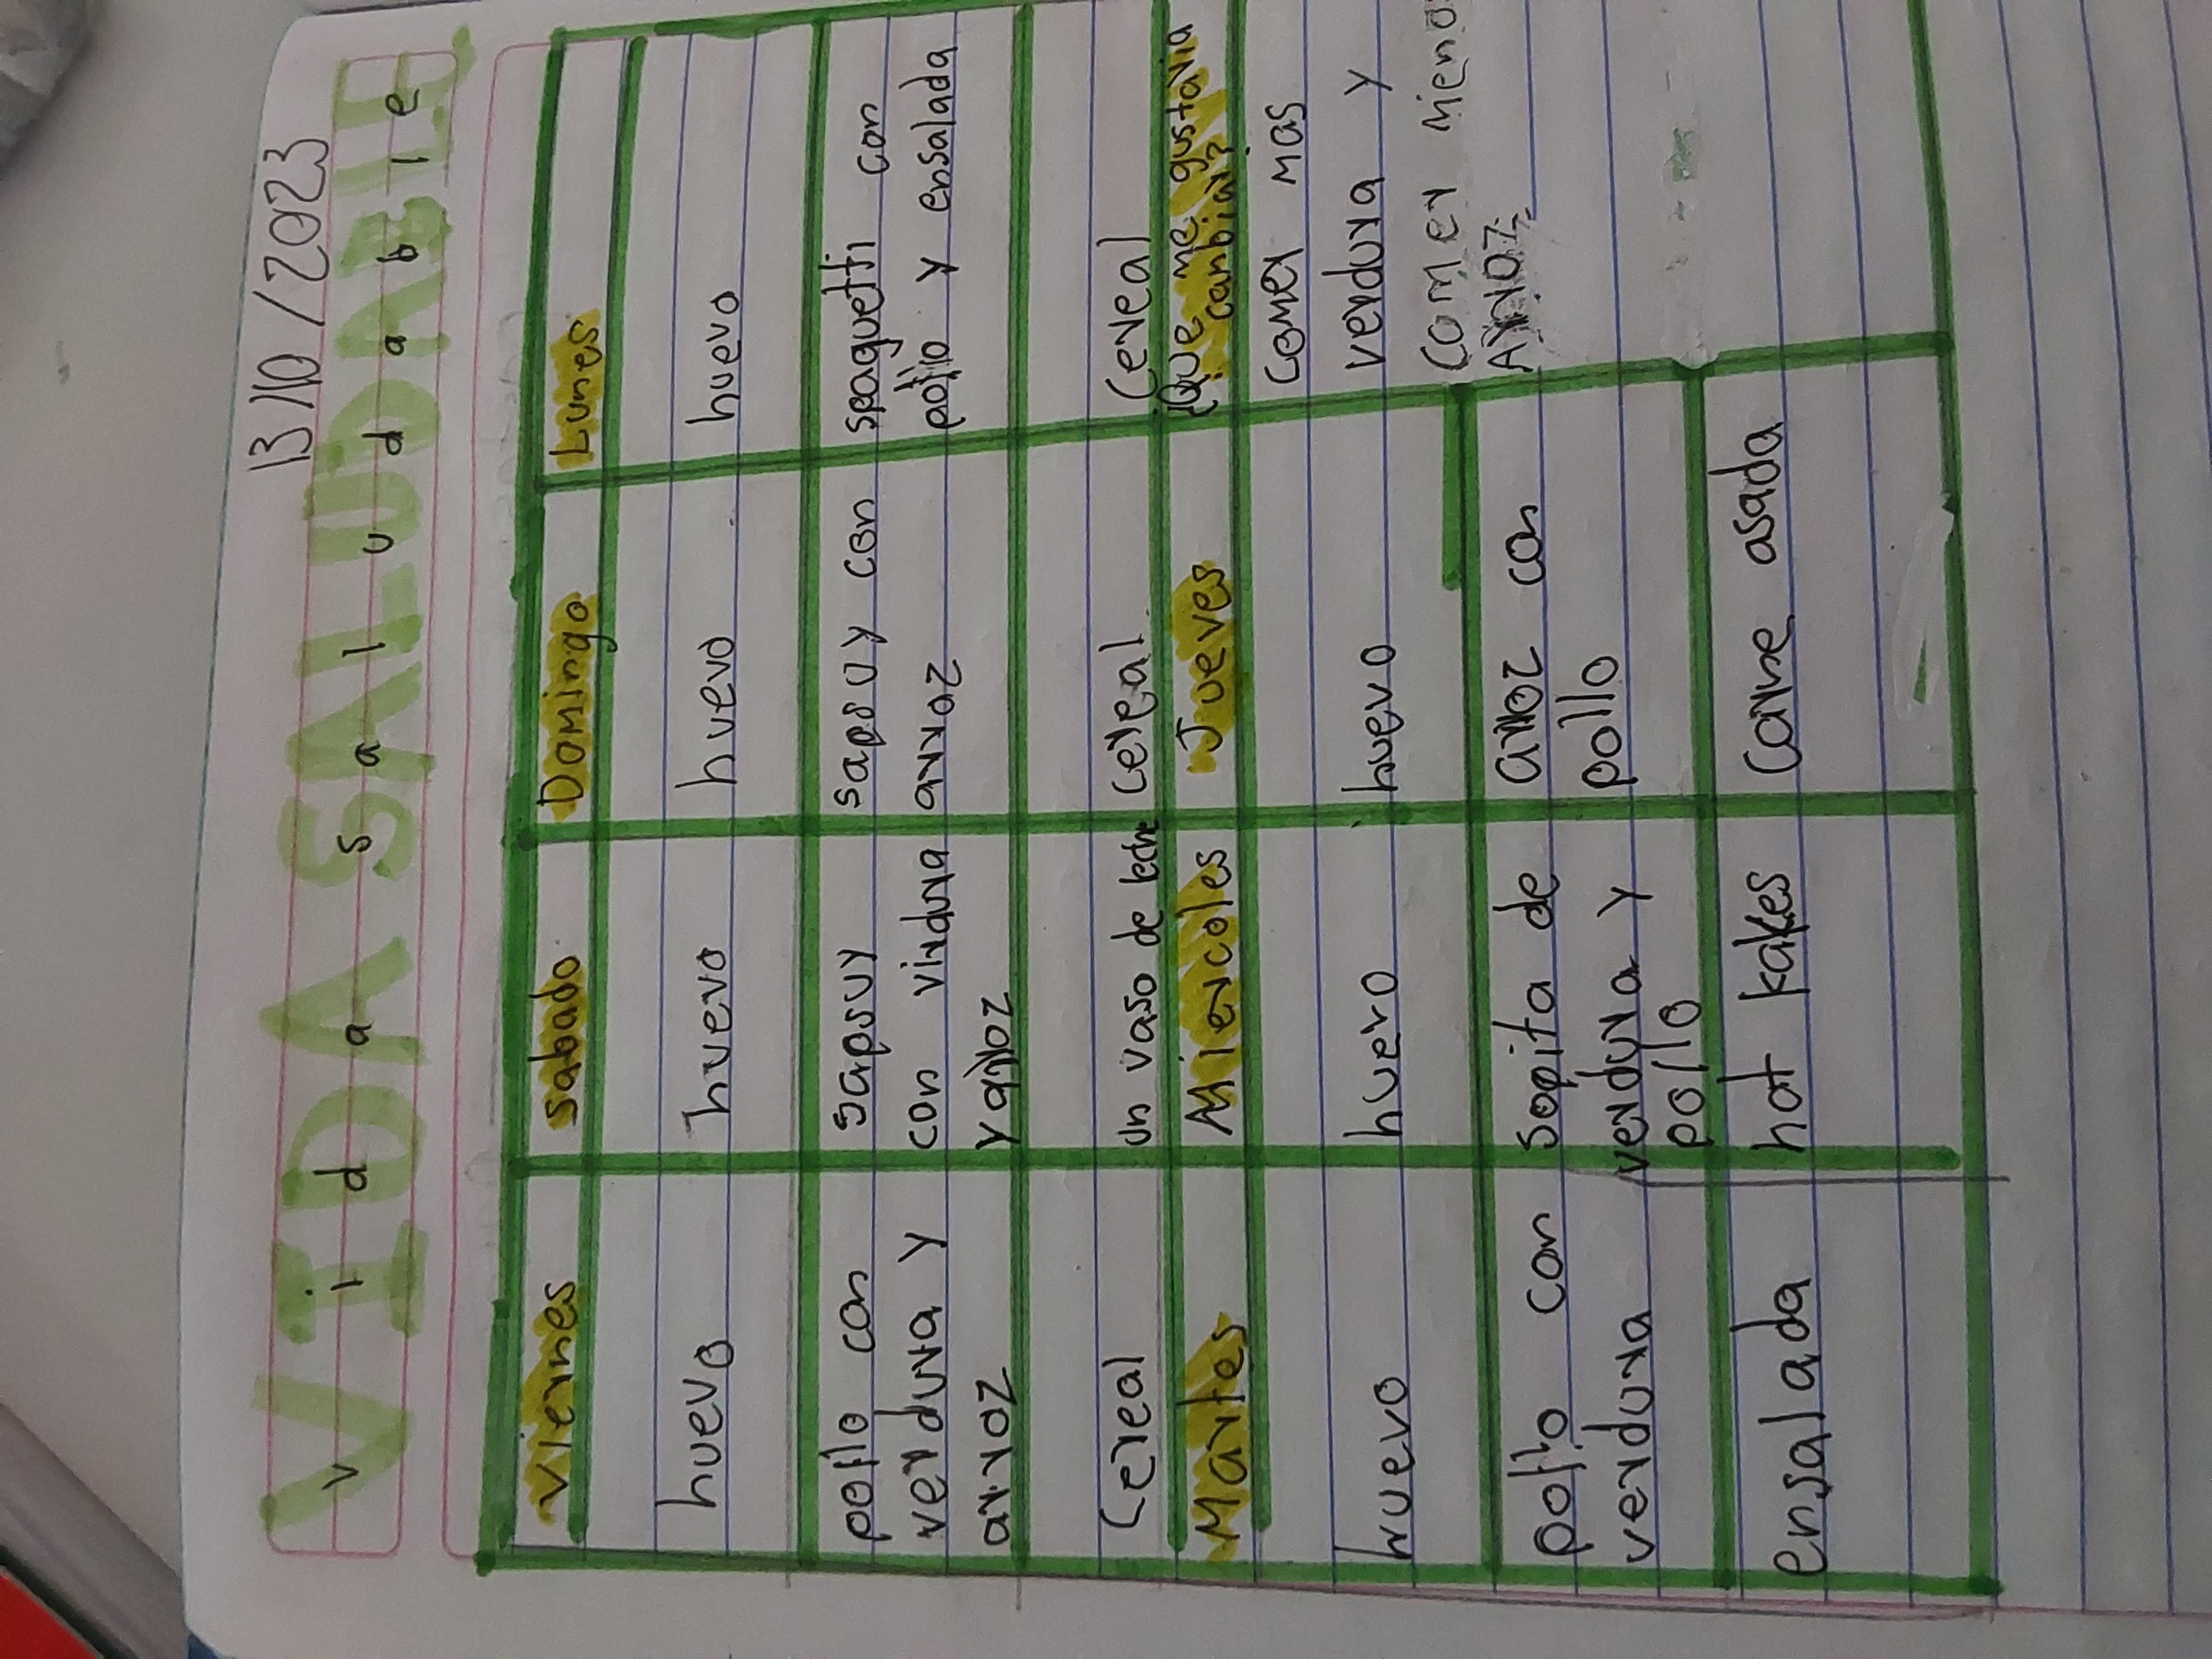 13/10/2023
VIDA SALUDABLE
vida saludable
Viernes
sabado
Domingo
Lunes
huevo
huevo
huevo
huevo
pollo con
verdura y
arroz
sapsuy
con virdura
y arroz
sapsuy con
arroz
spaguetti con
pollo y ensalada
Cereal
un vaso de leche
cereal
Cereal
Martes
Miercoles
Jueves
¿Que me gustaria
canbiar?
huevo
huevo
huevo
comer mas
verdura y
comer mieno
Arroz
pollo con
verdura
sopita de
verdura y
pollo
arroz con
pollo
ensalada
hot kakes
carne asada